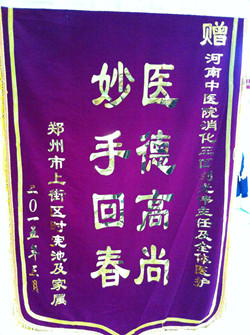 赠
河南中医院消化主任及全体医护
医德高尚
妙手回春
郑州市上街区时宪池及家属
二〇一五年三月